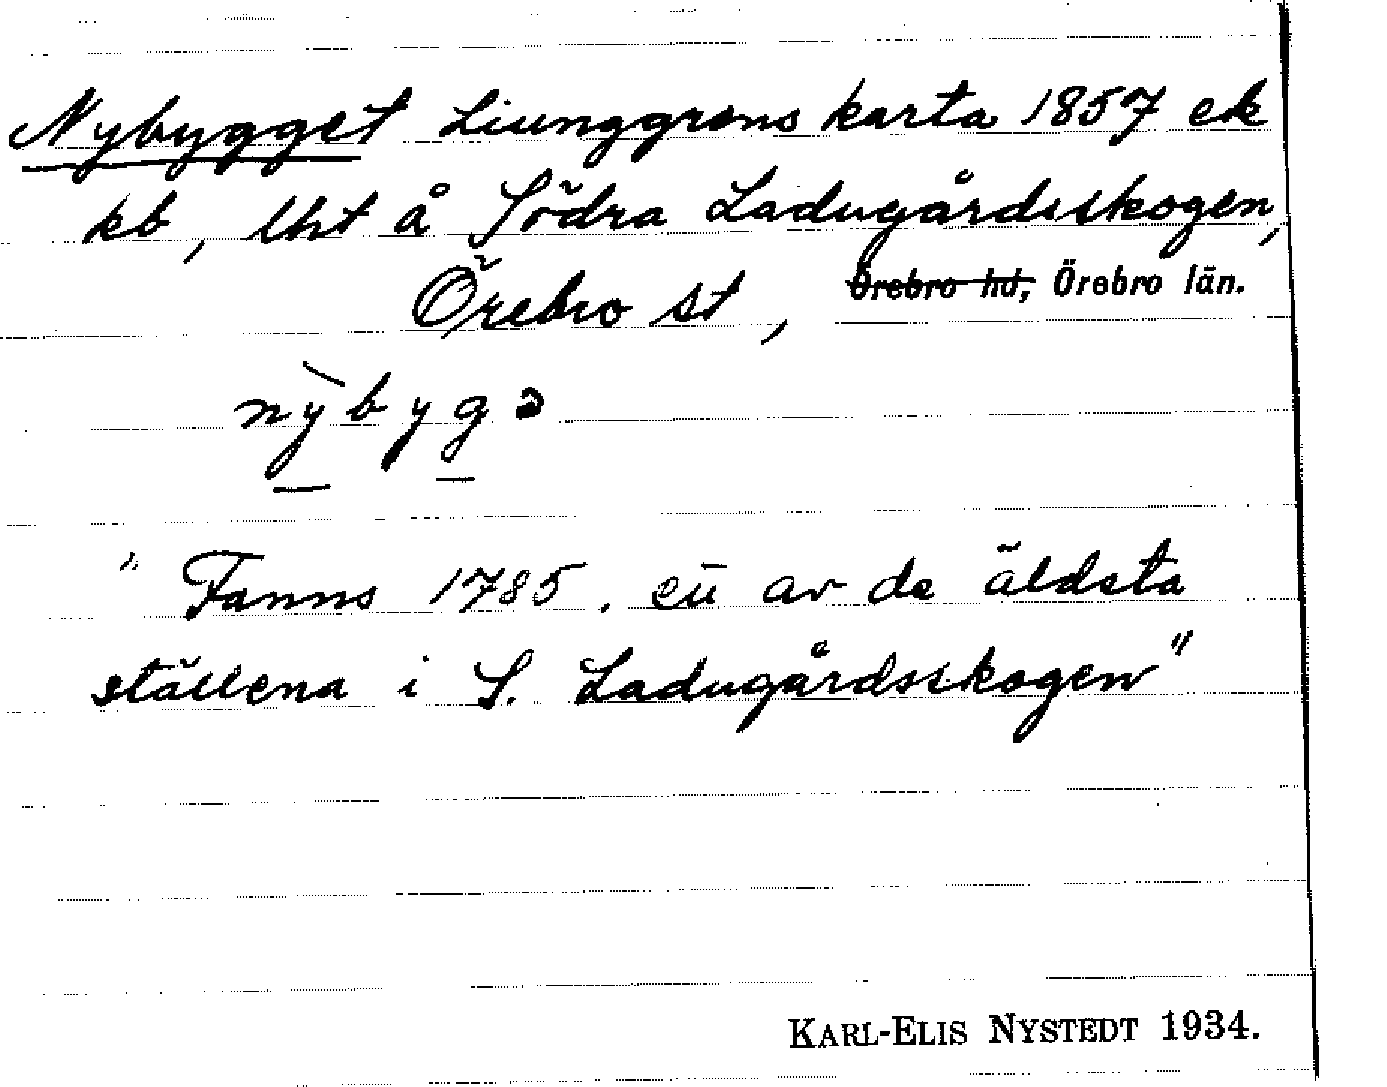 Nybygget Liunggrens karta 1857 ek
kb, lht å Södra Ladugårdsskogen,
Örebro st, Örebro hd, Örebro län.
nỳbygə
" Fanns 1785. av de äldsta
ställena i S. Ladugårdsskogen"
KARL-ELIS NYSTEDT 1934.